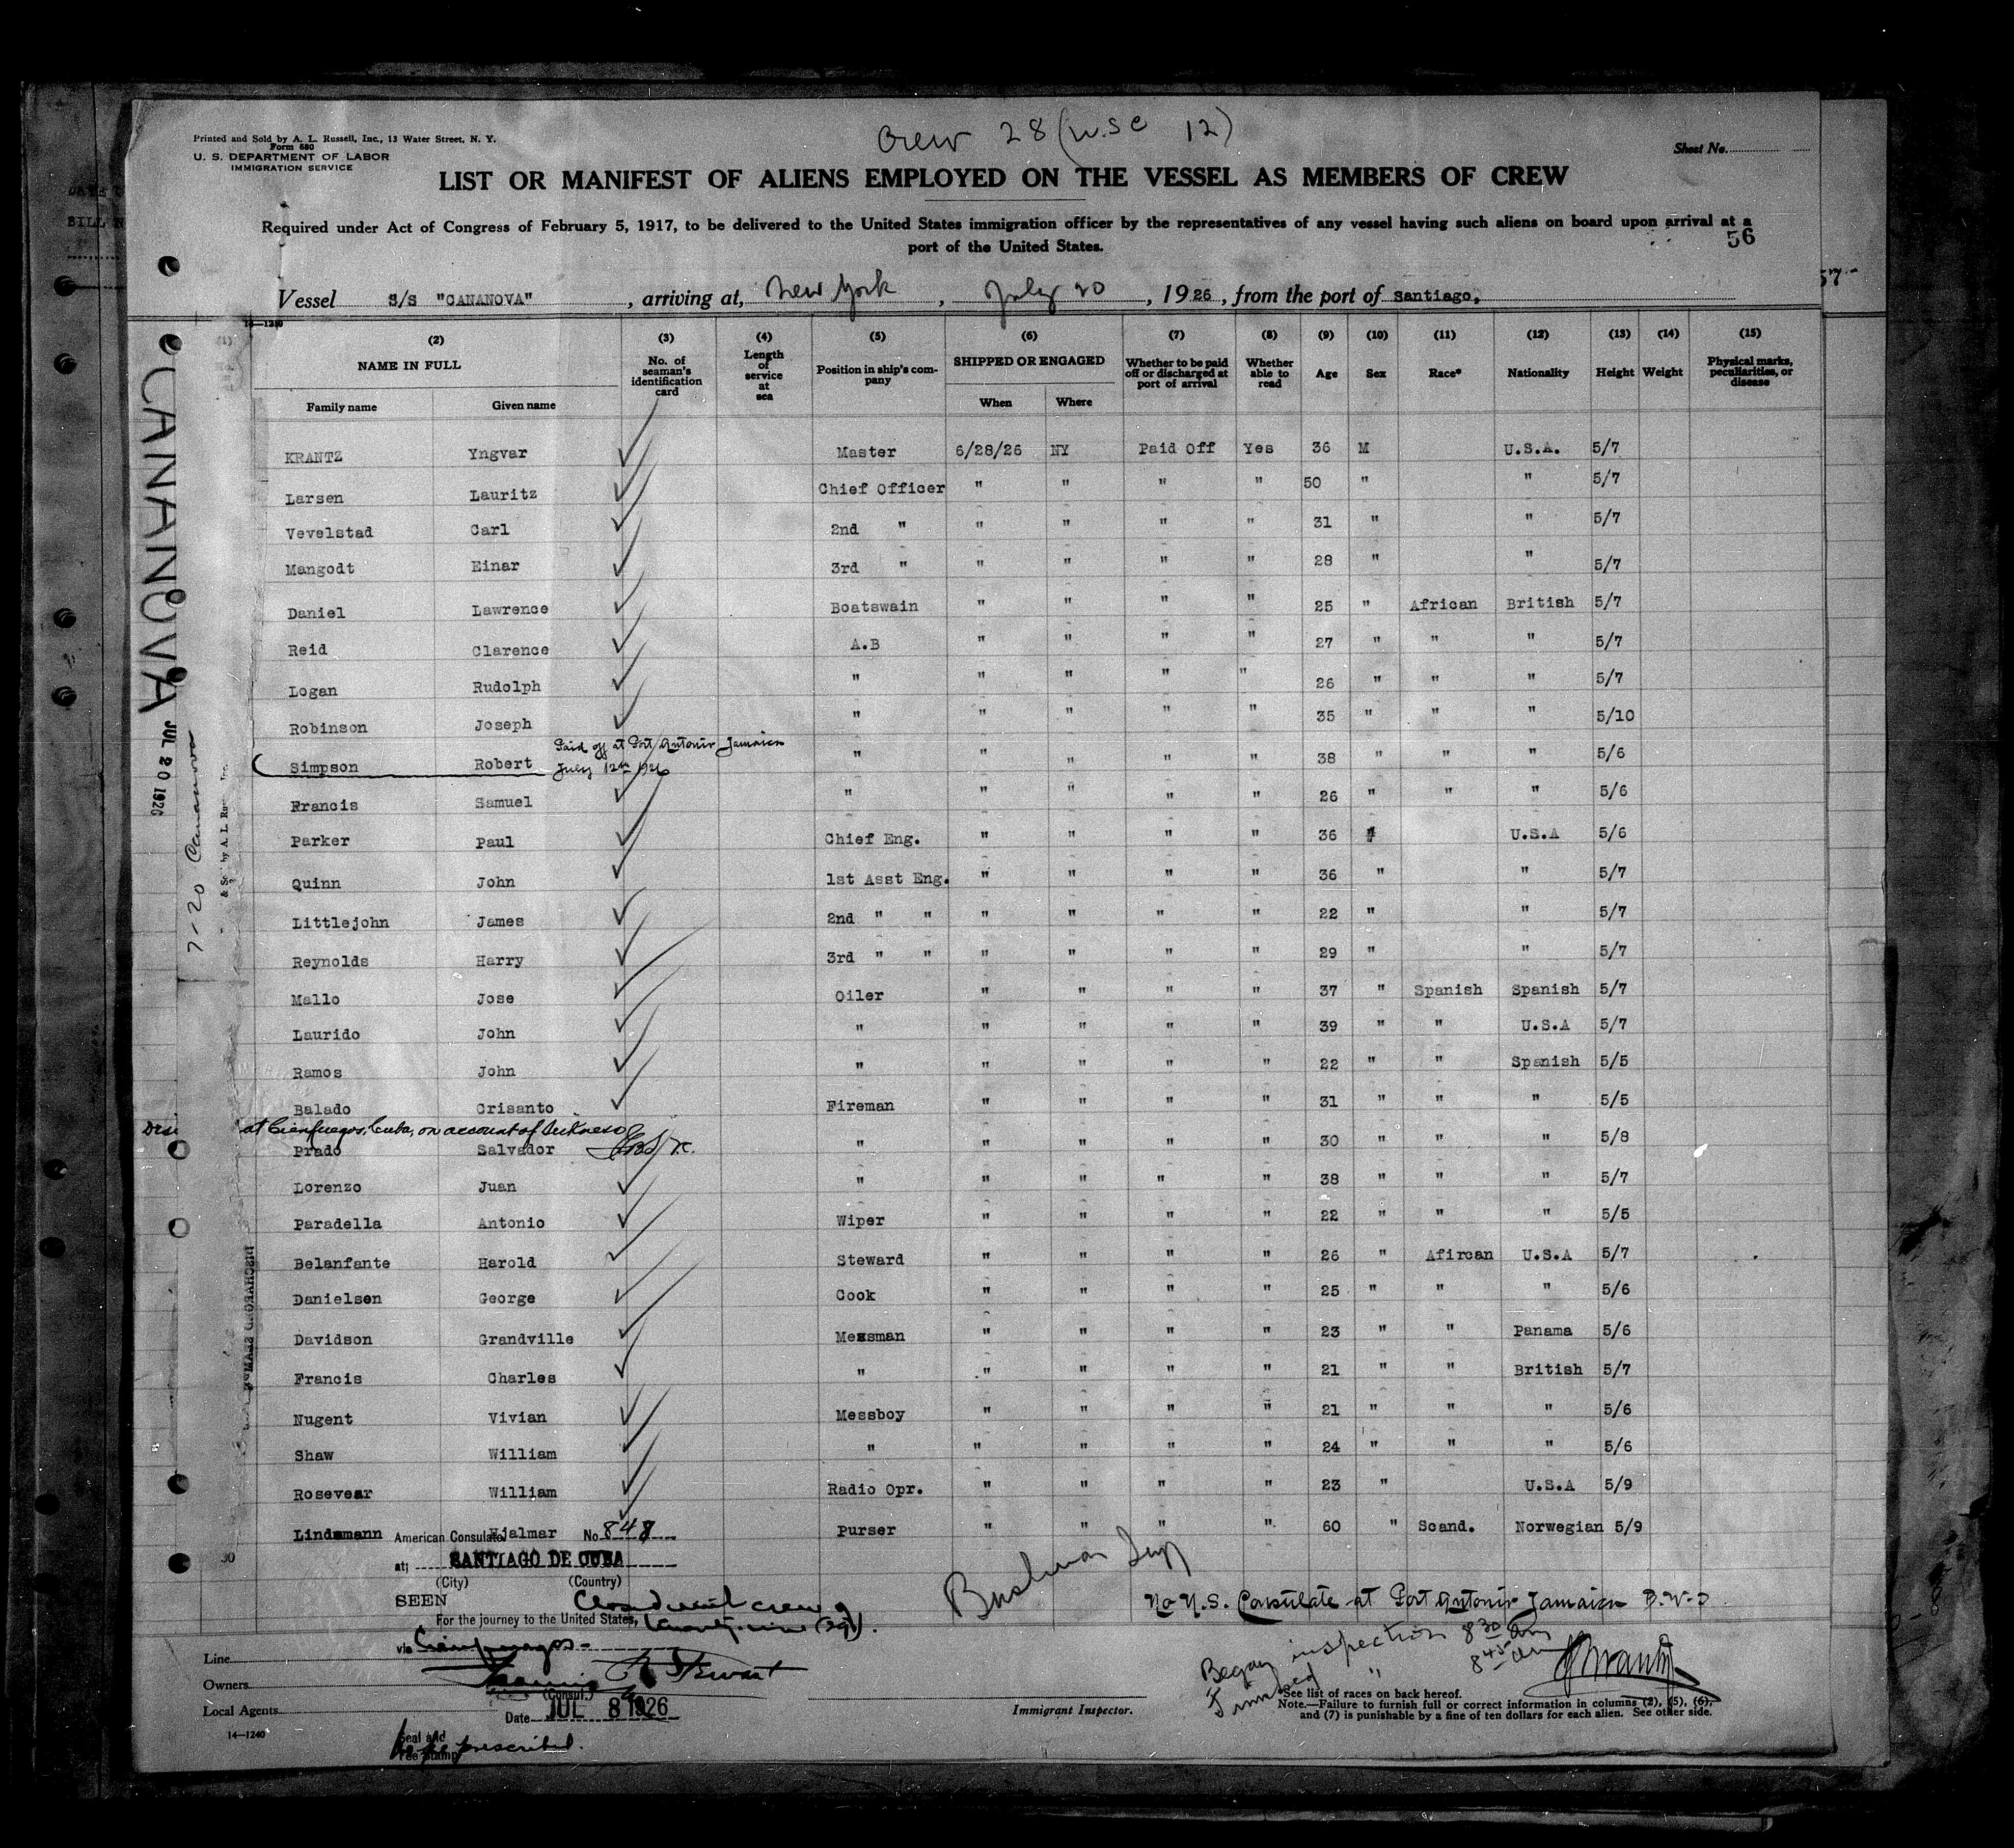 Crew 28 (U.S.C 12)
Printed and Sold by A. L. Russell, Inc., 13 Water Street, N. Y.
Form 680
U. S. DEPARTMENT OF LABOR
IMMIGRATION SERVICE
Sheet No.
LIST OR MANIFEST OF ALIENS EMPLOYED ON THE VESSEL AS MEMBERS OF CREW
Required under Act of Congress of February 5, 1917, to be delivered to the United States immigration officer by the representatives of any vessel having such aliens on board upon arrival at a
port of the United States.
56
Vessel S/S "CANANOVA", arriving at, New York, July 20, 1926, from the port of Santiago,
14—1240
(1) (2) (3) (4) (5) (6) (7) (8) (9) (10) (11) (12) (13) (14) (15)
NAME IN FULL No. of seaman's identification card Length of service at sea Position in ship's company SHIPPED OR ENGAGED Whether to be paid off or discharged at port of arrival Whether able to read Age Sex Race* Nationality Height Weight Physical marks, peculiarities, or disease
Family name Given name When Where
KRANTZ Yngvar Master 6/28/26 NY Paid Off Yes 36 M U.S.A. 5/7
Larsen Lauritz Chief Officer " " " " 50 " " 5/7
Vevelstad Carl 2nd " " " " " 31 " " 5/7
Mangodt Einar 3rd " " " " " 28 " " 5/7
Daniel Lawrence Boatswain " " " " 25 " African British 5/7
Reid Clarence A.B " " " " 27 " " " 5/7
Logan Rudolph " " " " " 26 " " " 5/7
Robinson Joseph " " " " " 35 " " " 5/10
Paid off at Port Antonio Jamaica
July 12th 1926
Simpson Robert " " " " " 38 " " " 5/6
Francis Samuel " " " " " 26 " " " 5/6
Parker Paul Chief Eng. " " " " 36 U.S.A 5/6
Quinn John 1st Asst Eng. " " " " 36 " " 5/7
Littlejohn James 2nd " " " " " " 22 " " 5/7
Reynolds Harry 3rd " " " " " " 29 " " 5/7
Mallo Jose Oiler " " " " 37 " Spanish Spanish 5/7
Laurido John " " " " " 39 " " U.S.A 5/7
Ramos John " " " " " 22 " " Spanish 5/5
Balado Crisanto Fireman " " " " 31 " " " 5/5
at Cienfuegos, Cuba, on account of Sickness
Prado Salvador " " " " " 30 " " " 5/8
Lorenzo Juan " " " " " 38 " " " 5/7
Paradella Antonio Wiper " " " " 22 " " " 5/5
Belanfante Harold Steward " " " " 26 " Afircan U.S.A 5/7
Danielsen George Cook " " " " 25 " " " 5/6
Davidson Grandville Messman " " " " 23 " " Panama 5/6
Francis Charles " " " " " 21 " " British 5/7
Nugent Vivian Messboy " " " " 21 " " " 5/6
Shaw William " " " " " 24 " " " 5/6
Rosevear William Radio Opr. " " " " 23 " U.S.A 5/9
Lindemann Hjalmar Purser " " " " 60 " Scand. Norwegian 5/9
30
American Consulate No. 848
at; SANTIAGO DE CUBA
(City) (Country)
SEEN
For the journey to the United States,
twenty-nine (29).
via Cienfuegos
Stewart
(Consul.)
Date JUL 8 1926
Seal and
Fee Stamp
prescribed.
No U.S. Consulate at Port Antonio Jamaica B.W.I
Began inspection 8 30 am
Finished " 8 45 am
Line
Owners
Local Agents
14—1240
Immigrant Inspector.
*See list of races on back hereof.
Note.—Failure to furnish full or correct information in columns (2), (5), (6),
and (7) is punishable by a fine of ten dollars for each alien. See other side.
CANANOVA
JUL 20 1926
7-20 Cananova